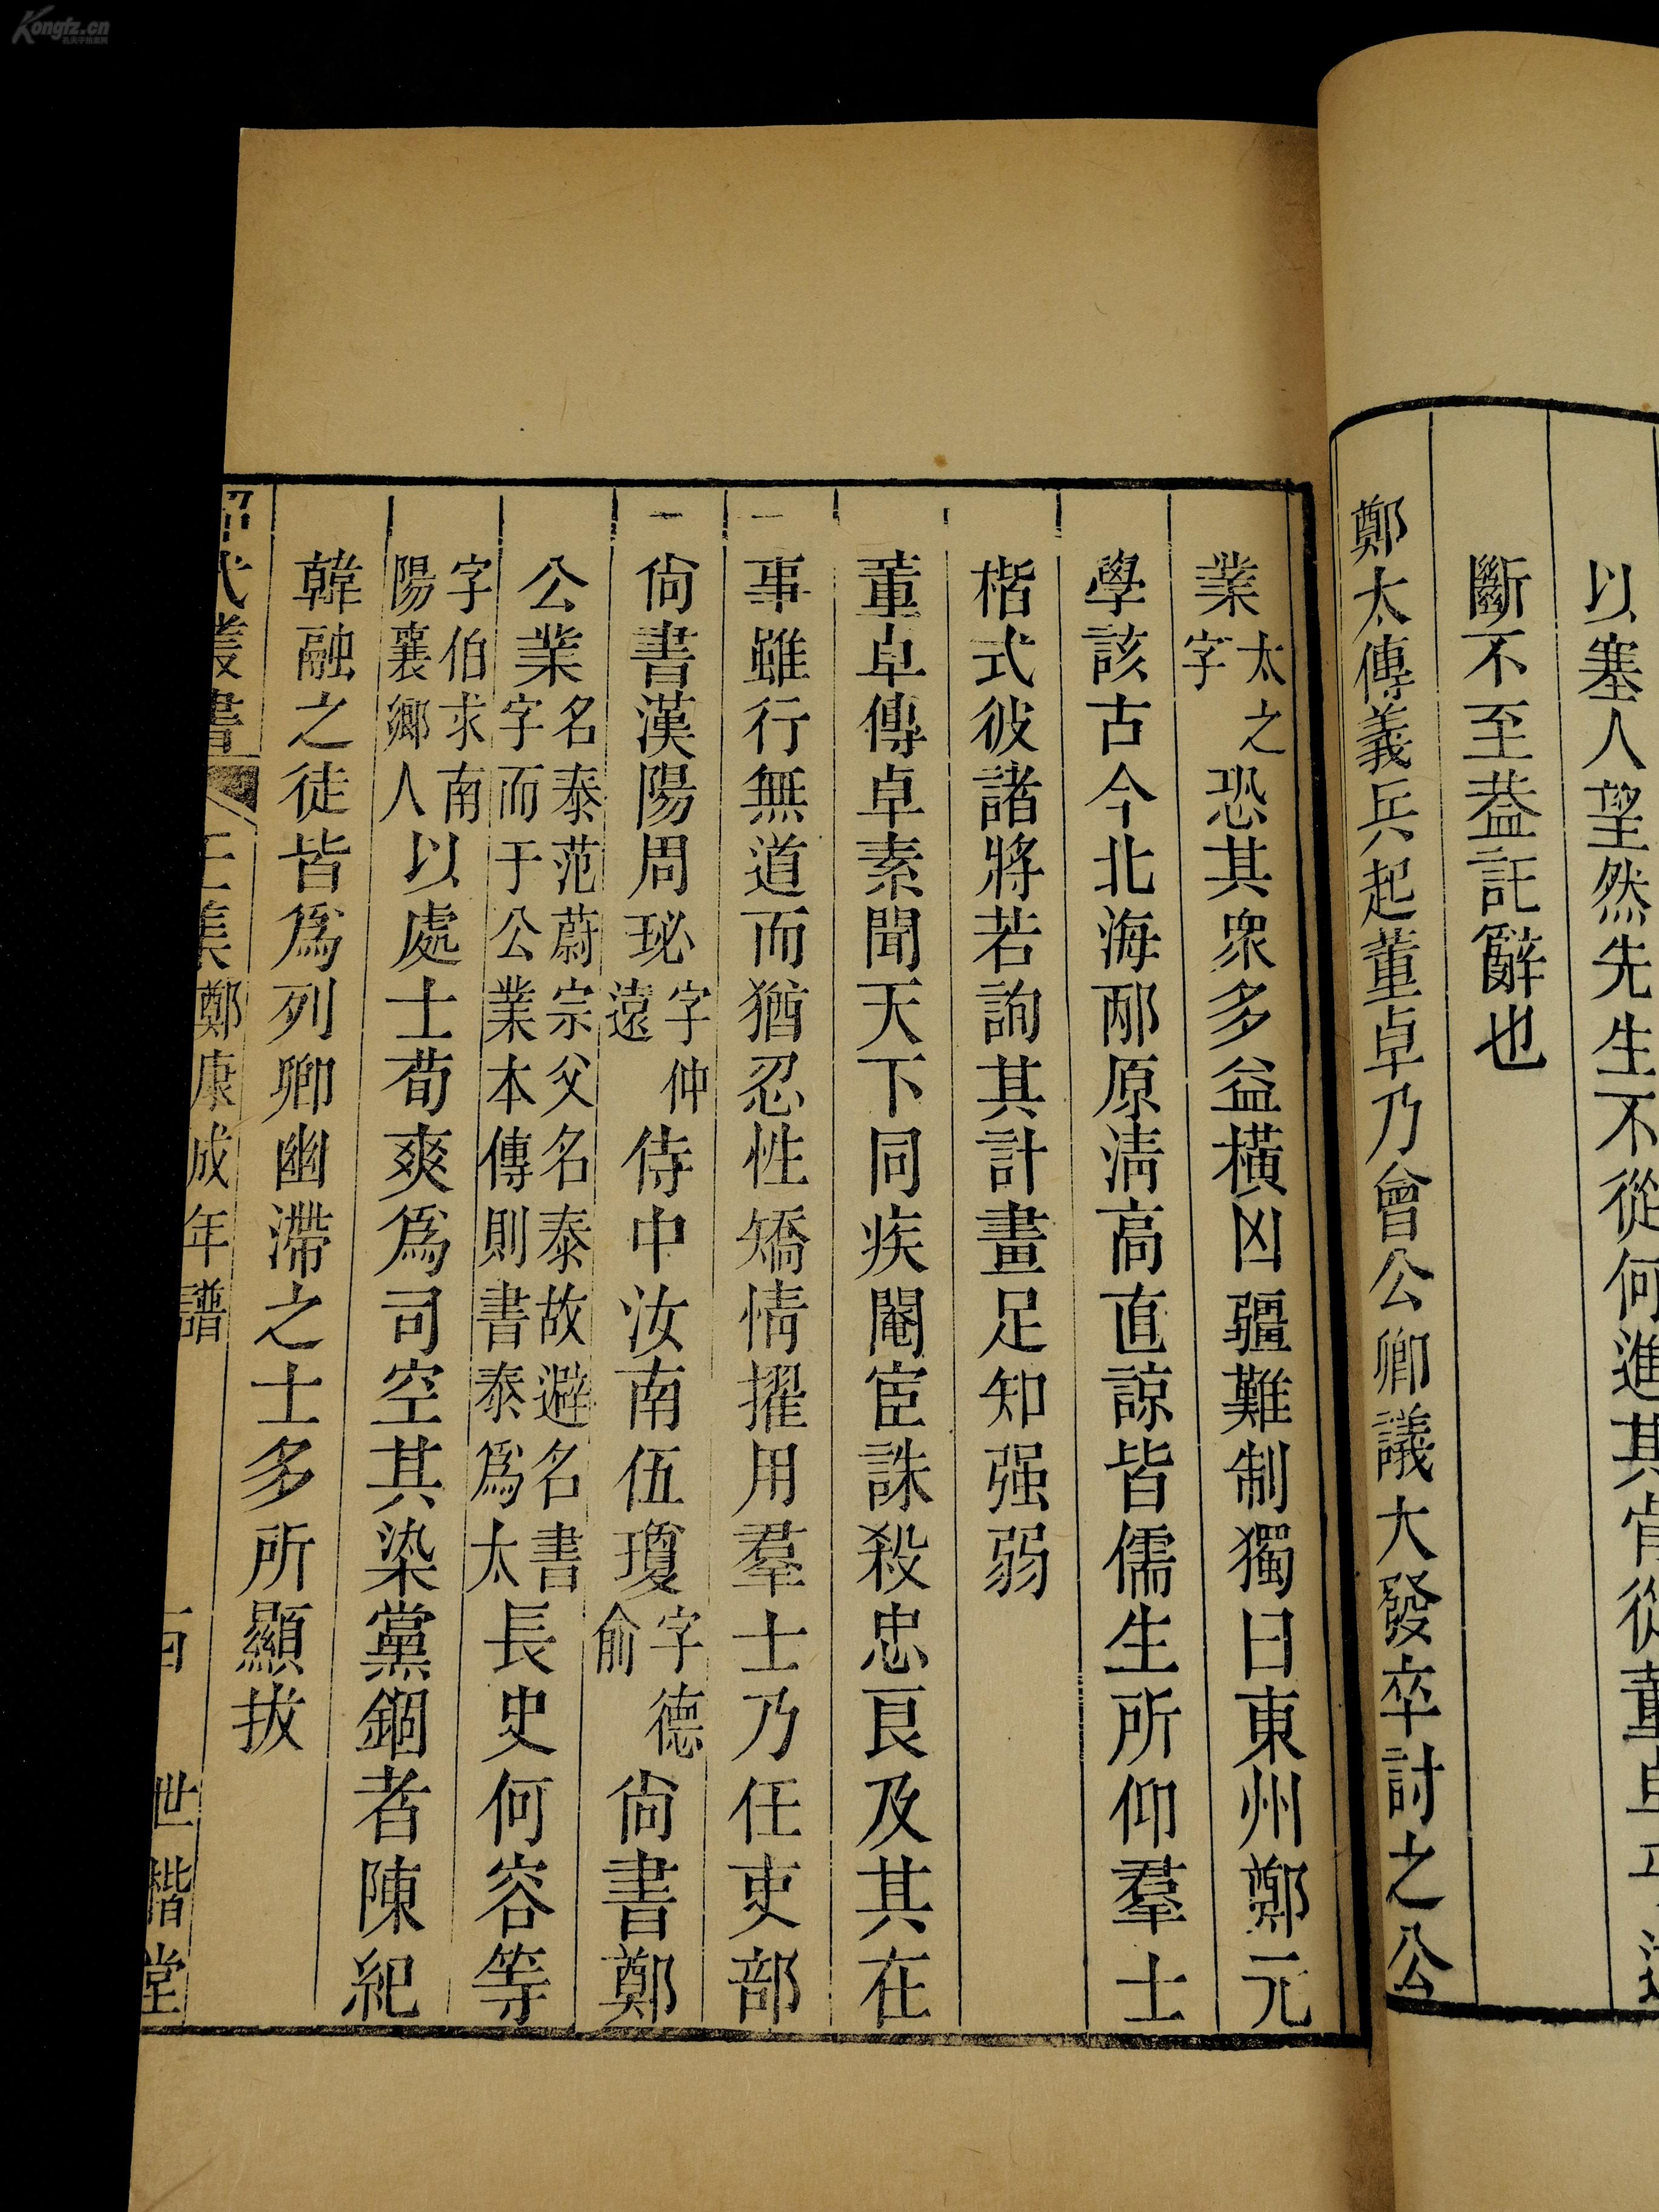 Kongfz.cn
以塞人望然先生不從何進其肯從董卓
斷不至葢託辭也
鄭太傳義兵起董卓乃會公卿議大發卒討之公
業太之字恐其衆多益橫凶彊難制獨曰東州鄭元
學該古今北海邴原淸高直諒皆儒生所仰羣士
楷式彼諸將若詢其計畫足知强弱
董卓傳卓素聞天下同疾閹宦誅殺忠良及其在
事雖行無道而猶忍性矯情擢用羣士乃任吏部
尙書漢陽周珌字仲遠侍中汝南伍瓊字德俞尙書鄭
公業名泰范蔚宗父名泰故避名書字而于公業本傳則書泰爲太長史何容等
字伯求南陽襄鄉人以處士荀爽爲司空其染黨錮者陳紀
韓融之徒皆爲列卿幽滯之士多所顯拔
昭代叢書
鄭康成年譜
世楷堂